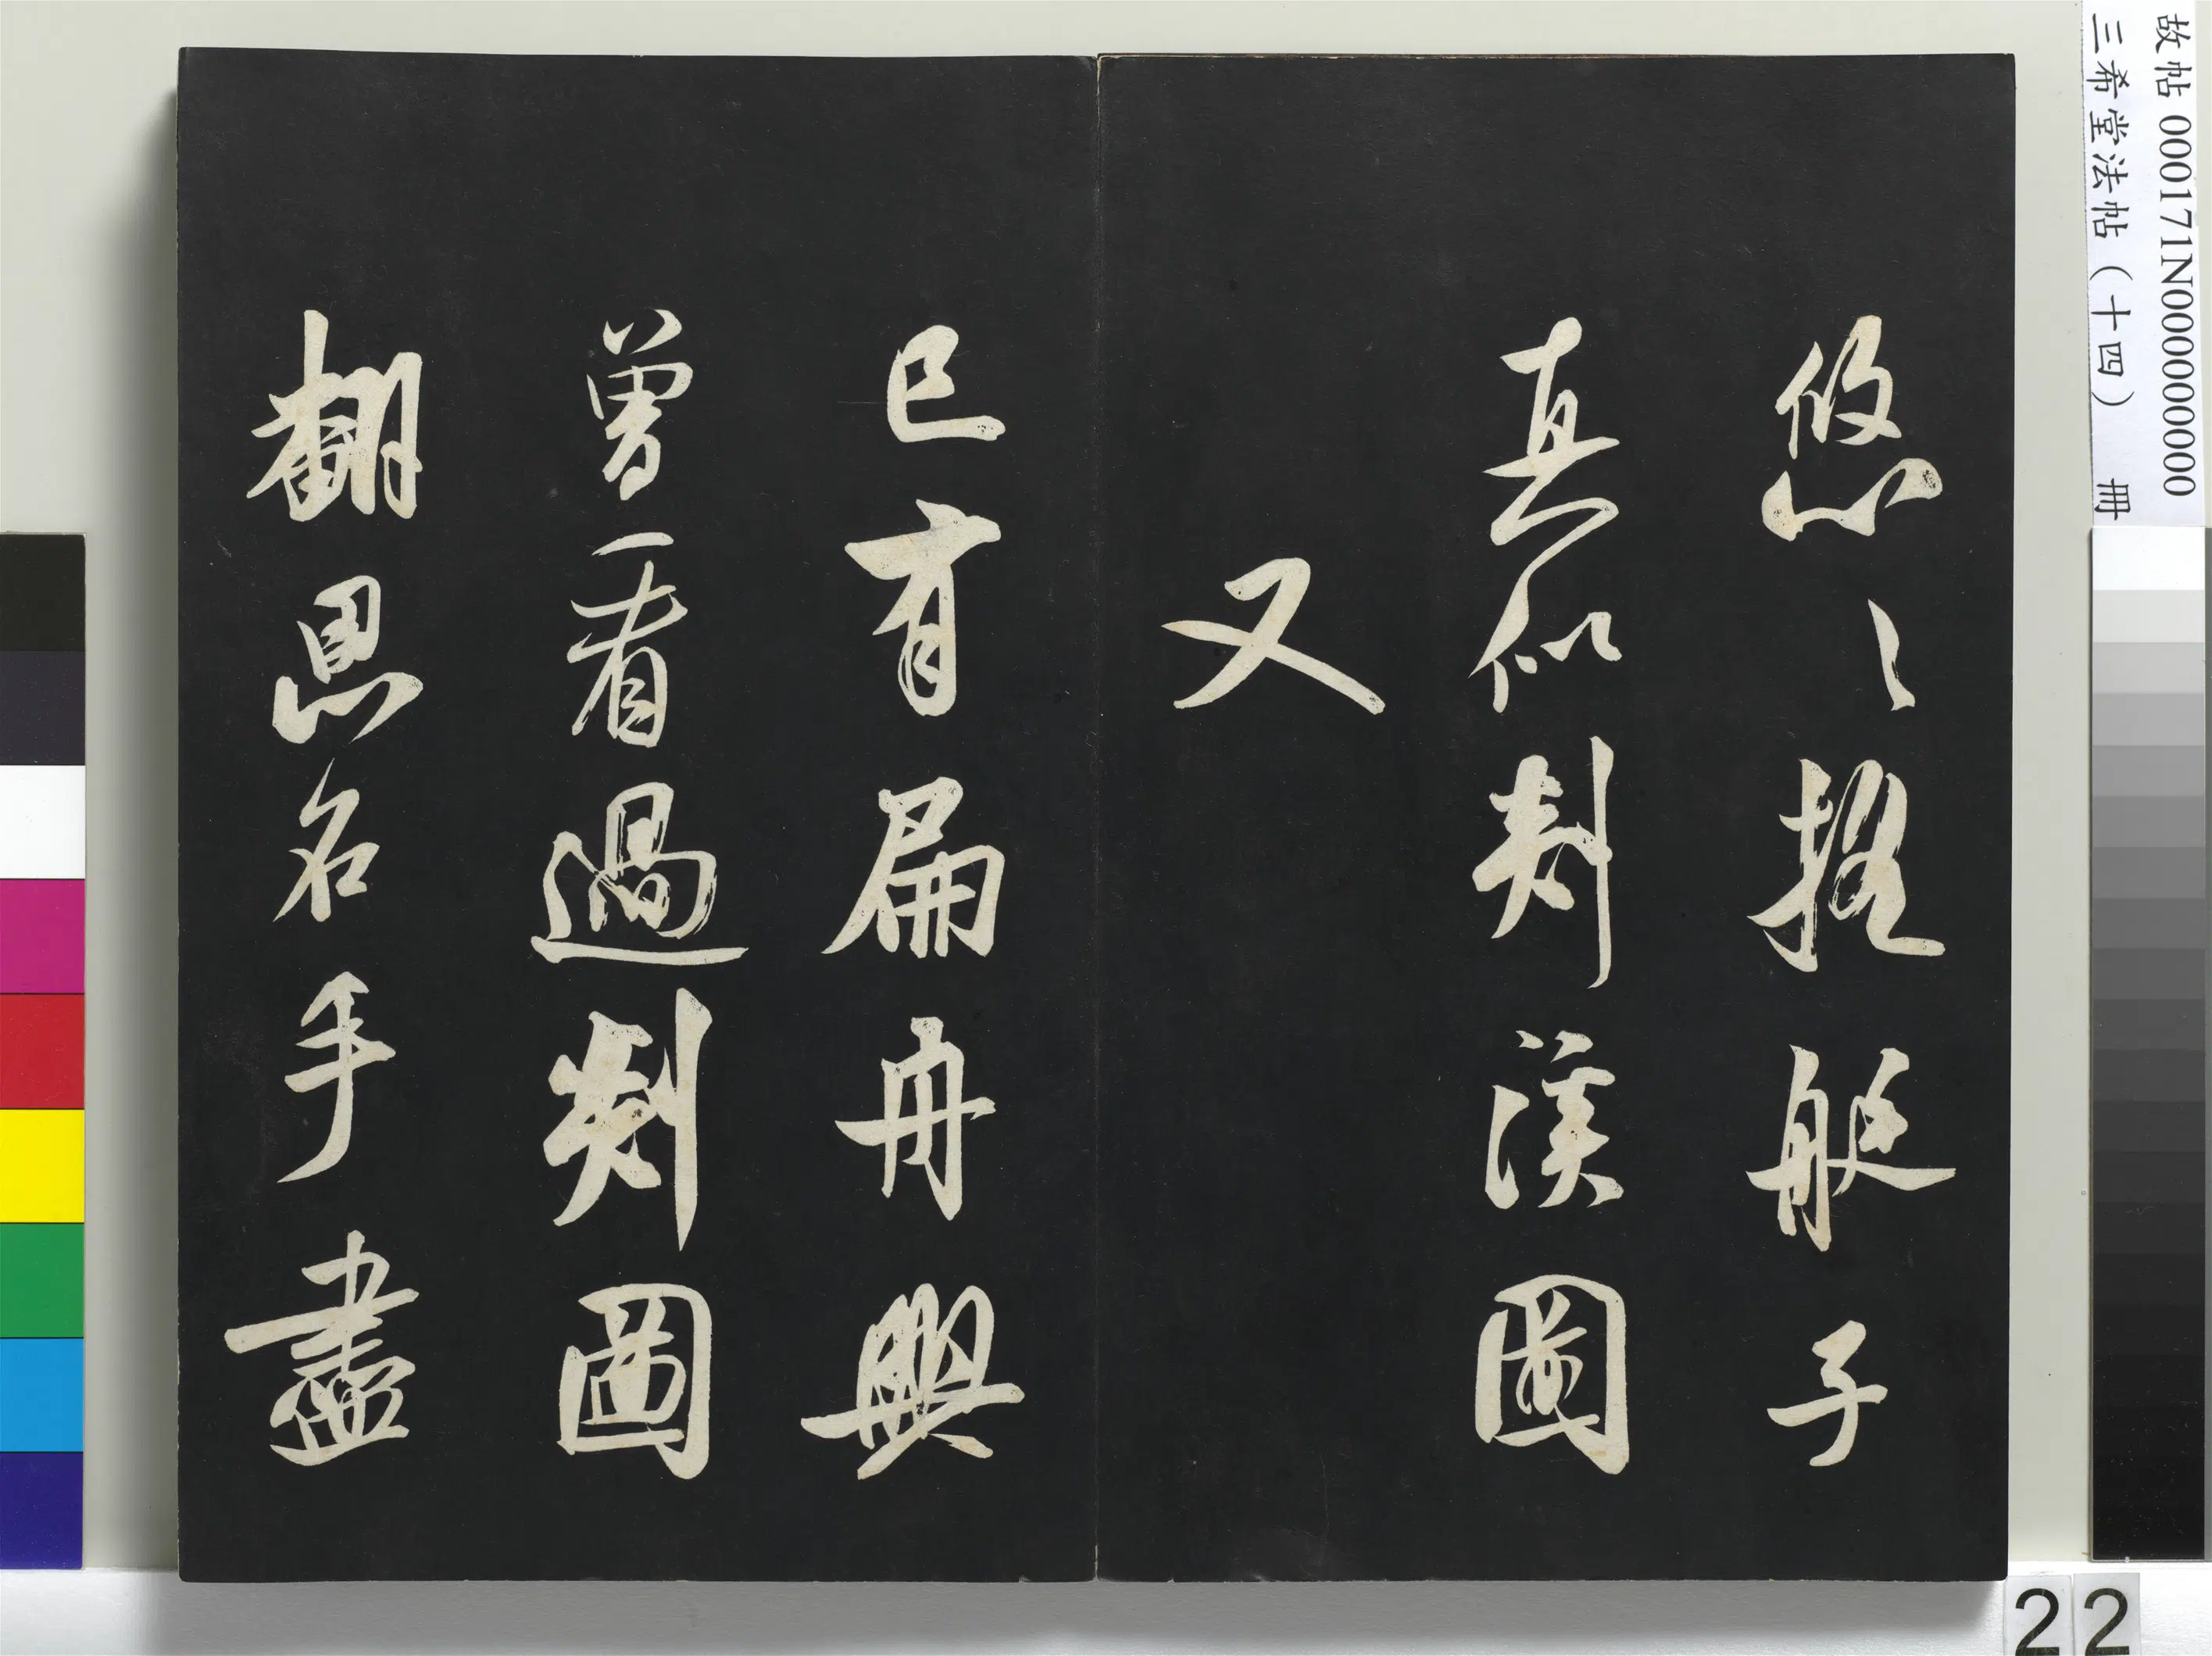 悠〻搖艇子
真似剡溪圖
又
已有扁舟興
曾看過剡圖
翻思名手盡
故帖 000171N000000000
三希堂法帖（十四） 冊
22